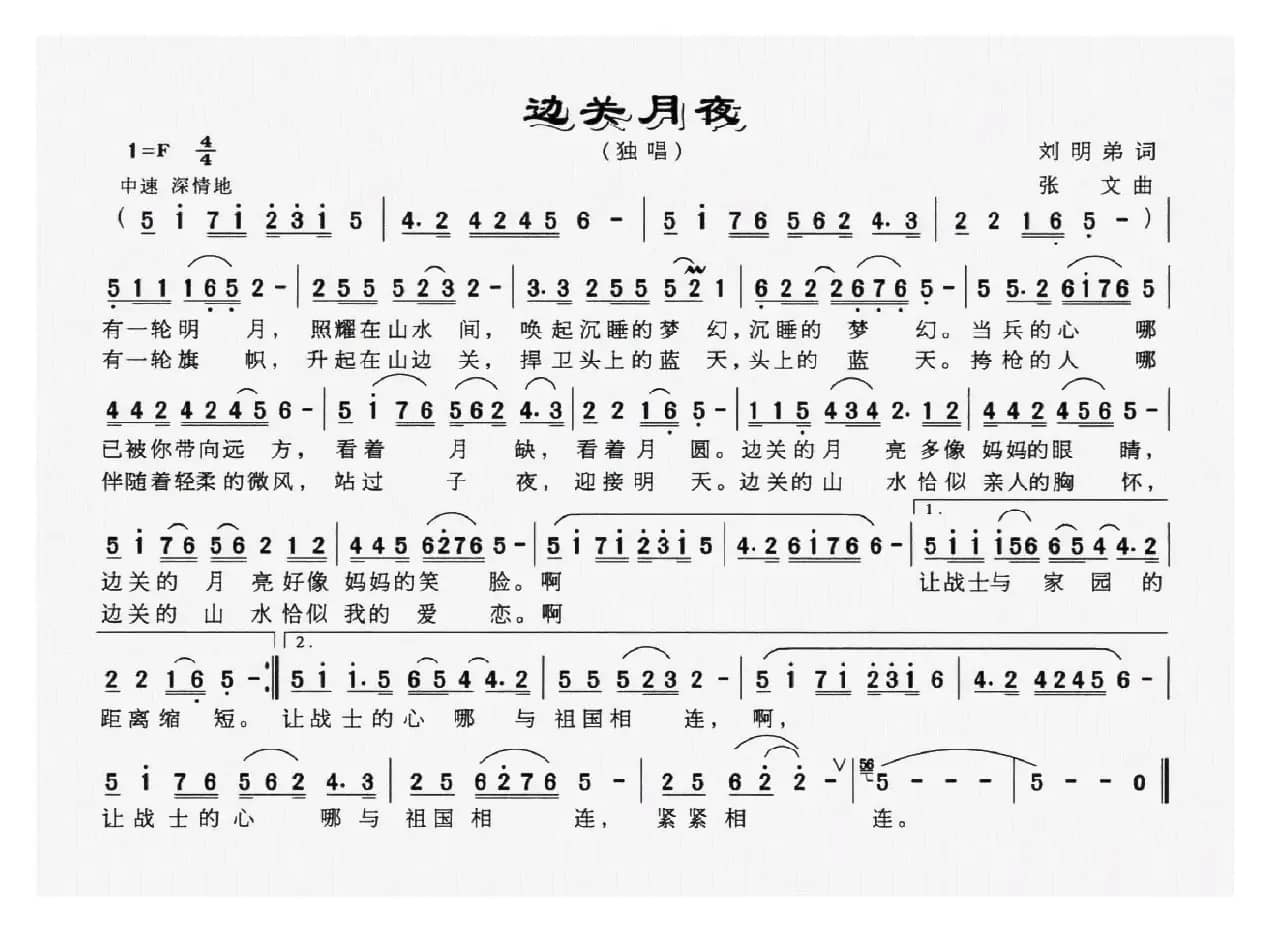 边关月夜
(独唱)
1=F 4/4
刘明弟词
中速 深情地
张 文曲
( 5 i 7 i 2 3 i 5 | 4. 2 4 2 4 5 6 - | 5 i 7 6 5 6 2 4. 3 | 2 2 1 6 5 - ) |
5 1 1 1 6 5 2 - | 2 5 5 5 2 3 2 - | 3. 3 2 5 5 5 2 1 | 6 2 2 2 6 7 6 5 - | 5 5. 2 6 i 7 6 5
有一轮明 月， 照耀在山水 间， 唤起沉睡的梦 幻，沉睡的 梦 幻。当兵的心 哪
有一轮旗 帜， 升起在山边 关， 捍卫头上的蓝 天，头上的 蓝 天。挎枪的人 哪
4 4 2 4 2 4 5 6 - | 5 i 7 6 5 6 2 4. 3 | 2 2 1 6 5 - | 1 1 5 4 3 4 2. 1 2 | 4 4 2 4 5 6 5 - |
已被你带向远 方， 看着 月 缺， 看着月 圆。边关的月 亮多像 妈妈的眼 睛，
伴随着轻柔的微风， 站过 子 夜， 迎接明 天。边关的山 水恰似 亲人的胸 怀，
1.
5 i 7 6 5 6 2 1 2 | 4 4 5 6 2 7 6 5 - | 5 i 7 i 2 3 i 5 | 4. 2 6 i 7 6 6 - | 5 i i i 5 6 6 5 4 4. 2 |
边关的 月 亮好像 妈妈的笑 脸。啊 让战士与 家园的
边关的 山 水恰似 我的 爱 恋。啊
2.
2 2 1 6 5 - :‖ 5 i i. 5 6 5 4 4. 2 | 5 5 5 2 3 2 - | 5 i 7 i 2 3 i 6 | 4. 2 4 2 4 5 6 - |
距离缩 短。 让战士的心 哪 与 祖国相 连， 啊，
5 i 7 6 5 6 2 4. 3 | 2 5 6 2 7 6 5 - | 2 5 6 2 2 - V | 56 5 - - - | 5 - - 0 ‖
让战士的心 哪与 祖国相 连， 紧紧相 连。